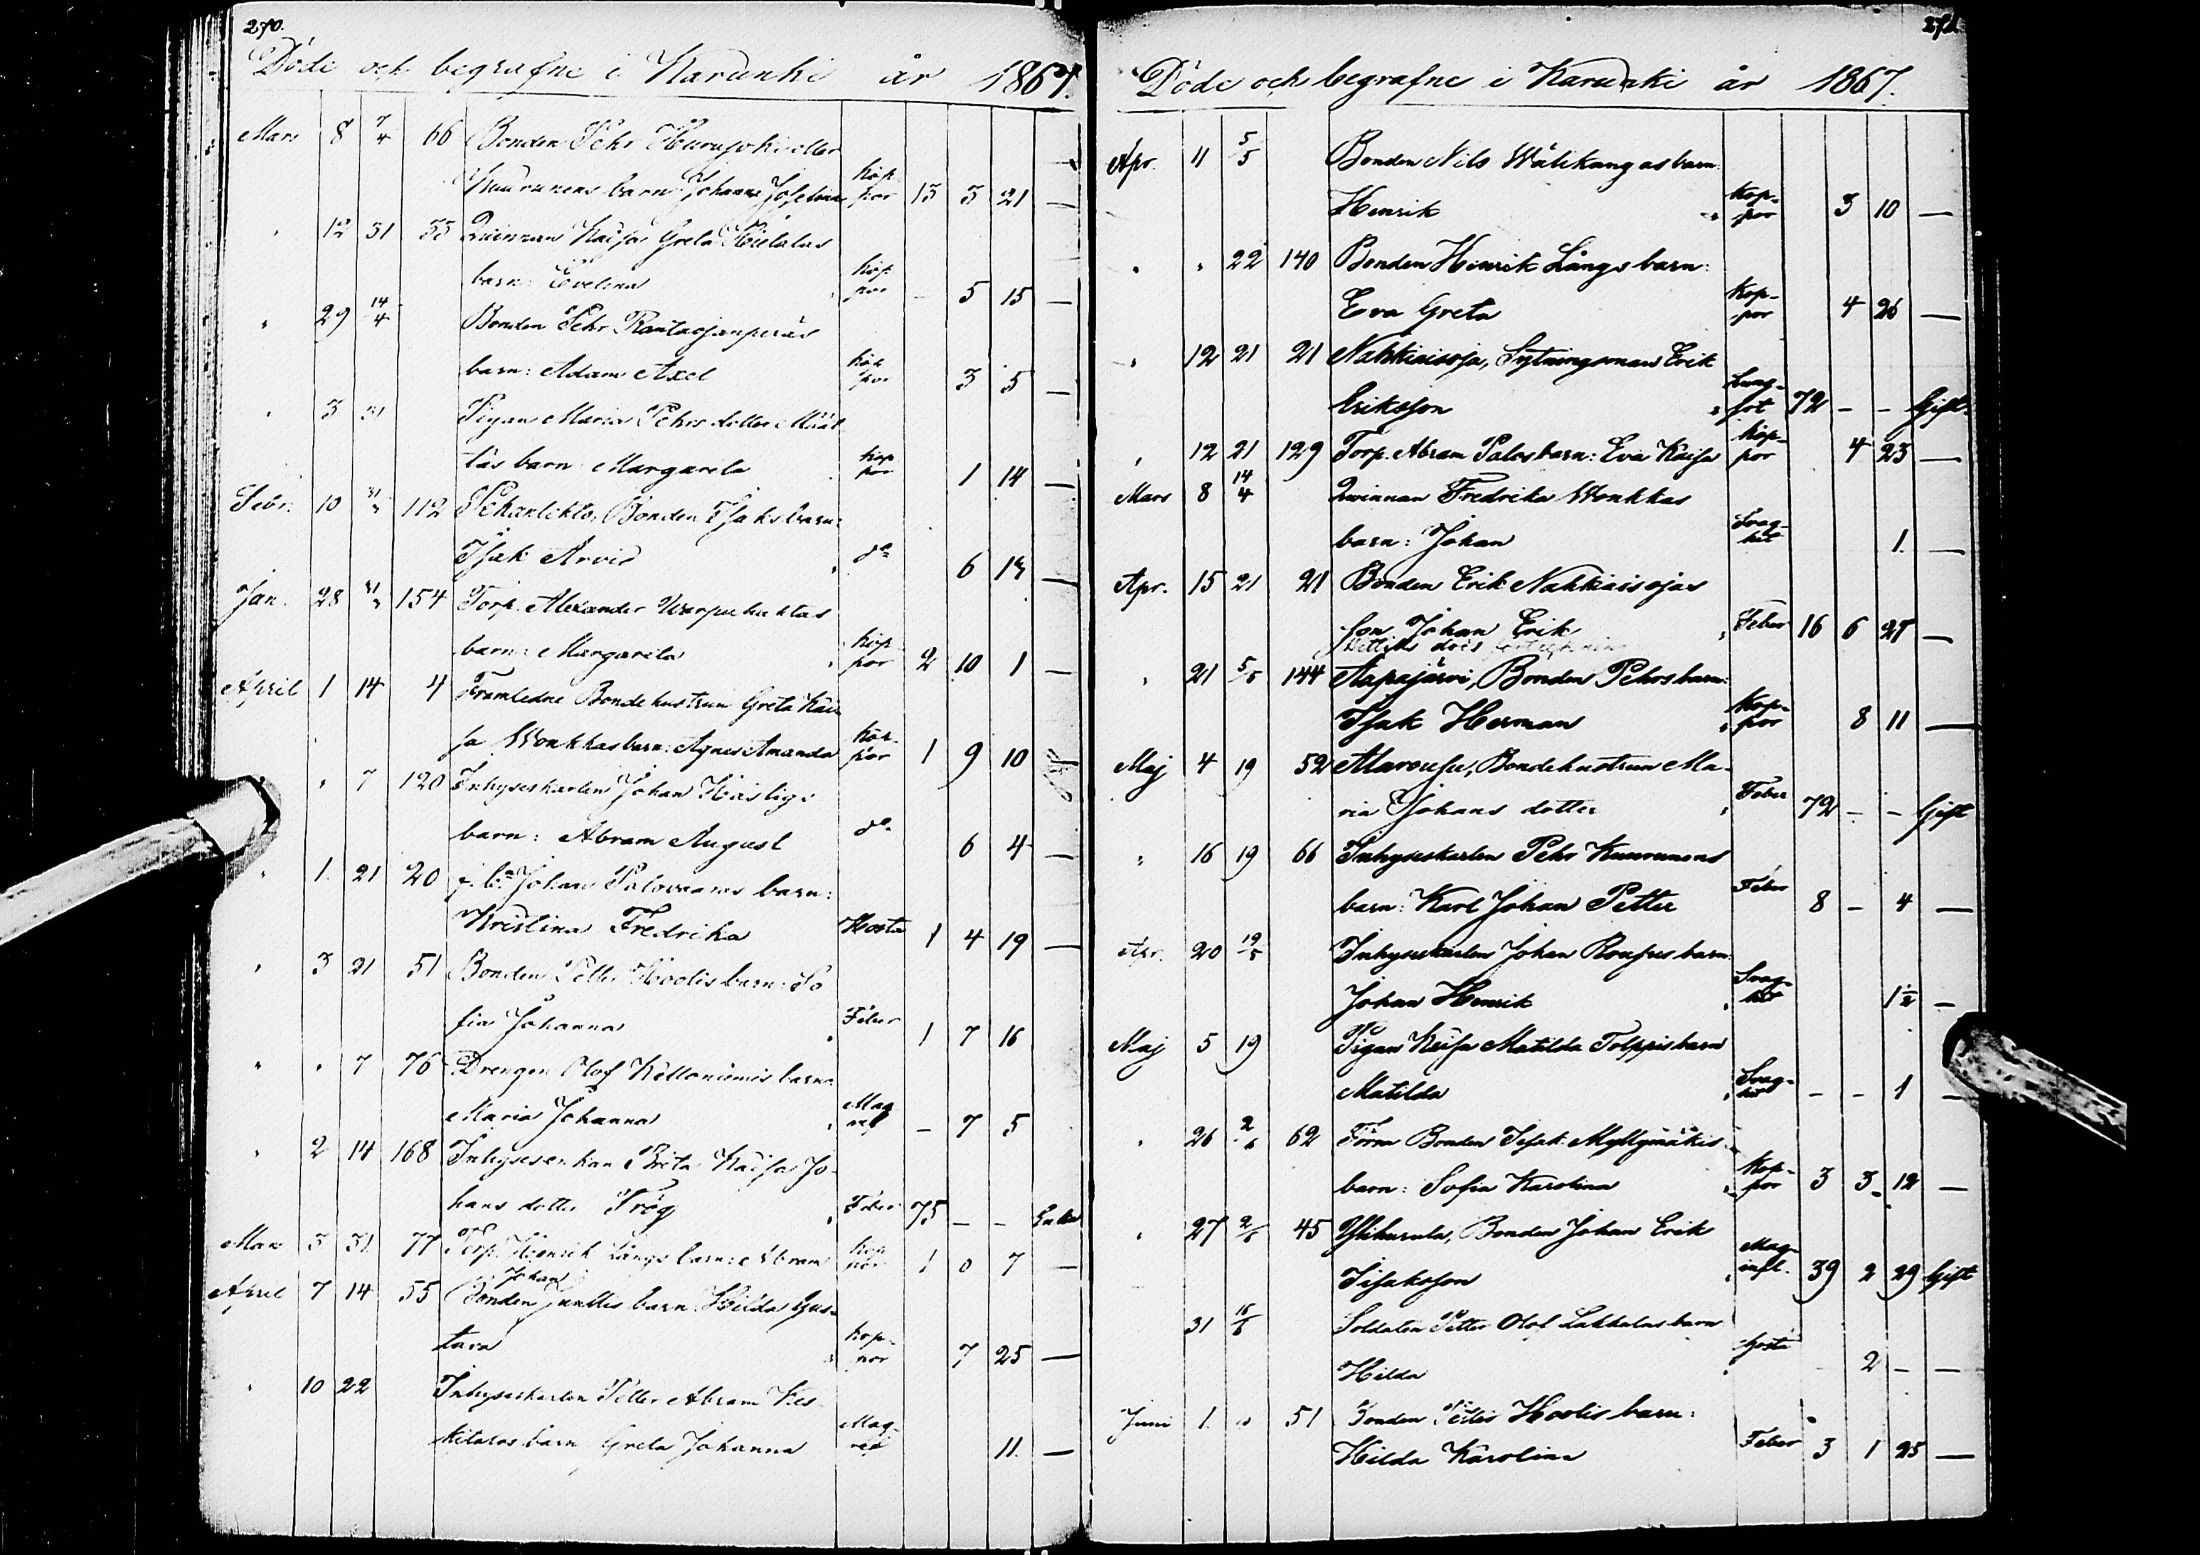 270.
Döde och begrafne i Karunki år 1867.
Mars 8 7/4 66 Bonden Pehr
barn: Johanna Josefina Kop-por 13 3 21 —
" 12 31 33 Quinnan Kaisa Greta Hietalas
barn: Evelina Kop-por - 5 15 —
" 29 14/4 Bonden Pehr
barn: Adam Axel Kop-por 3 5 —
" 3 31 Pigan Maria Pehrsdotter Määt
täs barn: Margareta Kop-por 1 14 —
Febr. 10 31/3 112 Bonden Isaks barn:
Isak Arvid do 6 13 —
Jan. 28 31/3 154 Torp. Alexander
barn: Margareta Kop-por 2 10 1 —
April 1 14 4 Framledne Bondehustrun Greta Kai
sa Wonkkas barn: Agnes Amanda Kop-por 1 9 10
" " 7 120 Inhyseskarlen Johan
barn: Abram August do 6 4 —
" 1. 21 20 Johan Palovaaras barn:
Kristina Fredrika Hosta 1 4 19 —
" 3 21 51 Bonden Petter Hoolis barn: So
fia Johanna Feber 1 7 16
" " 7 76 Drengen Olof Keltaniemis barn:
Maria Johanna Mag ref - 7 5
" 2 14 168 Inhysesenkan Brita Kaisa Jo
hans dotter Frög Feber 75 - - Enka
Mars 3 31 77 Torp. Henrik Långs barn: Abram Kop-por 1 0 7 —
Johan
April 7 14 55 Bonden Junttis barn: Hilda Gus-
tava Kop-por 7 25 —
" 10 22 Inhyseskarlen Petter Abram Kes
kitalos barn Greta Johanna Mag-ref 11. —
271.
Döde och begrafne i Karunki år 1867.
Apr. 11 5/5 Bonden Nils Wälikangas barn:
Henrik Kop-por 3 10 —
" " 22 140 Bonden Henrik Långs barn:
Eva Greta Kop-por 4 26 —
" 12 21 21 Nahkiaisoja, Sytningsman Erik
Eriksson Lung-sot 72 - - Gift
" 12 21 129 Torp. Abram Palos barn: Eva Kaisa Kop-por 4 23 —
Mars 8 14/4 Quinnan Fredrika Wonkkas
barn: Johan Svag-het 1. —
Apr. 15 21 21 Bonden Erik Nahkiaisojas
son Johan Erik Feber 16 6 27 —
" 21 5/5 144 Aapajärvi, Bonden Pehrs barn:
Isak Herman Kop-por 8 11 —
Maj 4 19 52 Bondehustrun Ma-
ria Johans dotter Feber 72 - - Gift
" 16 19 66 Inhyseskarlen Pehr Kuurunens
barn: Karl Johan Petter Feber 8 - 4 —
Apr. 20 19/5 Inhyseskarlen Johan barn
Johan Henrik Svag-het 1½ —
Maj 5 19 Pigan Kaisa Matilda Tolppis barn
Matilda Svag-het - - 1 —
" 26 2/6 62 Bonden Isak Myllymäkis
barn: Sofia Karolina Kop-por 3 3 12 —
" 27 2/6 45 Ylikurula, Bonden Johan Erik
Isaksson Mag-infl. 39 2 29 Gift
31 15/6 Soldaten Petter Olof Lakkalas barn
Hilda Hosta 2 - —
Juni 1. 51 Bonden Petter Hoolis barn:
Hilda Karolina Feber 3 1 25 —